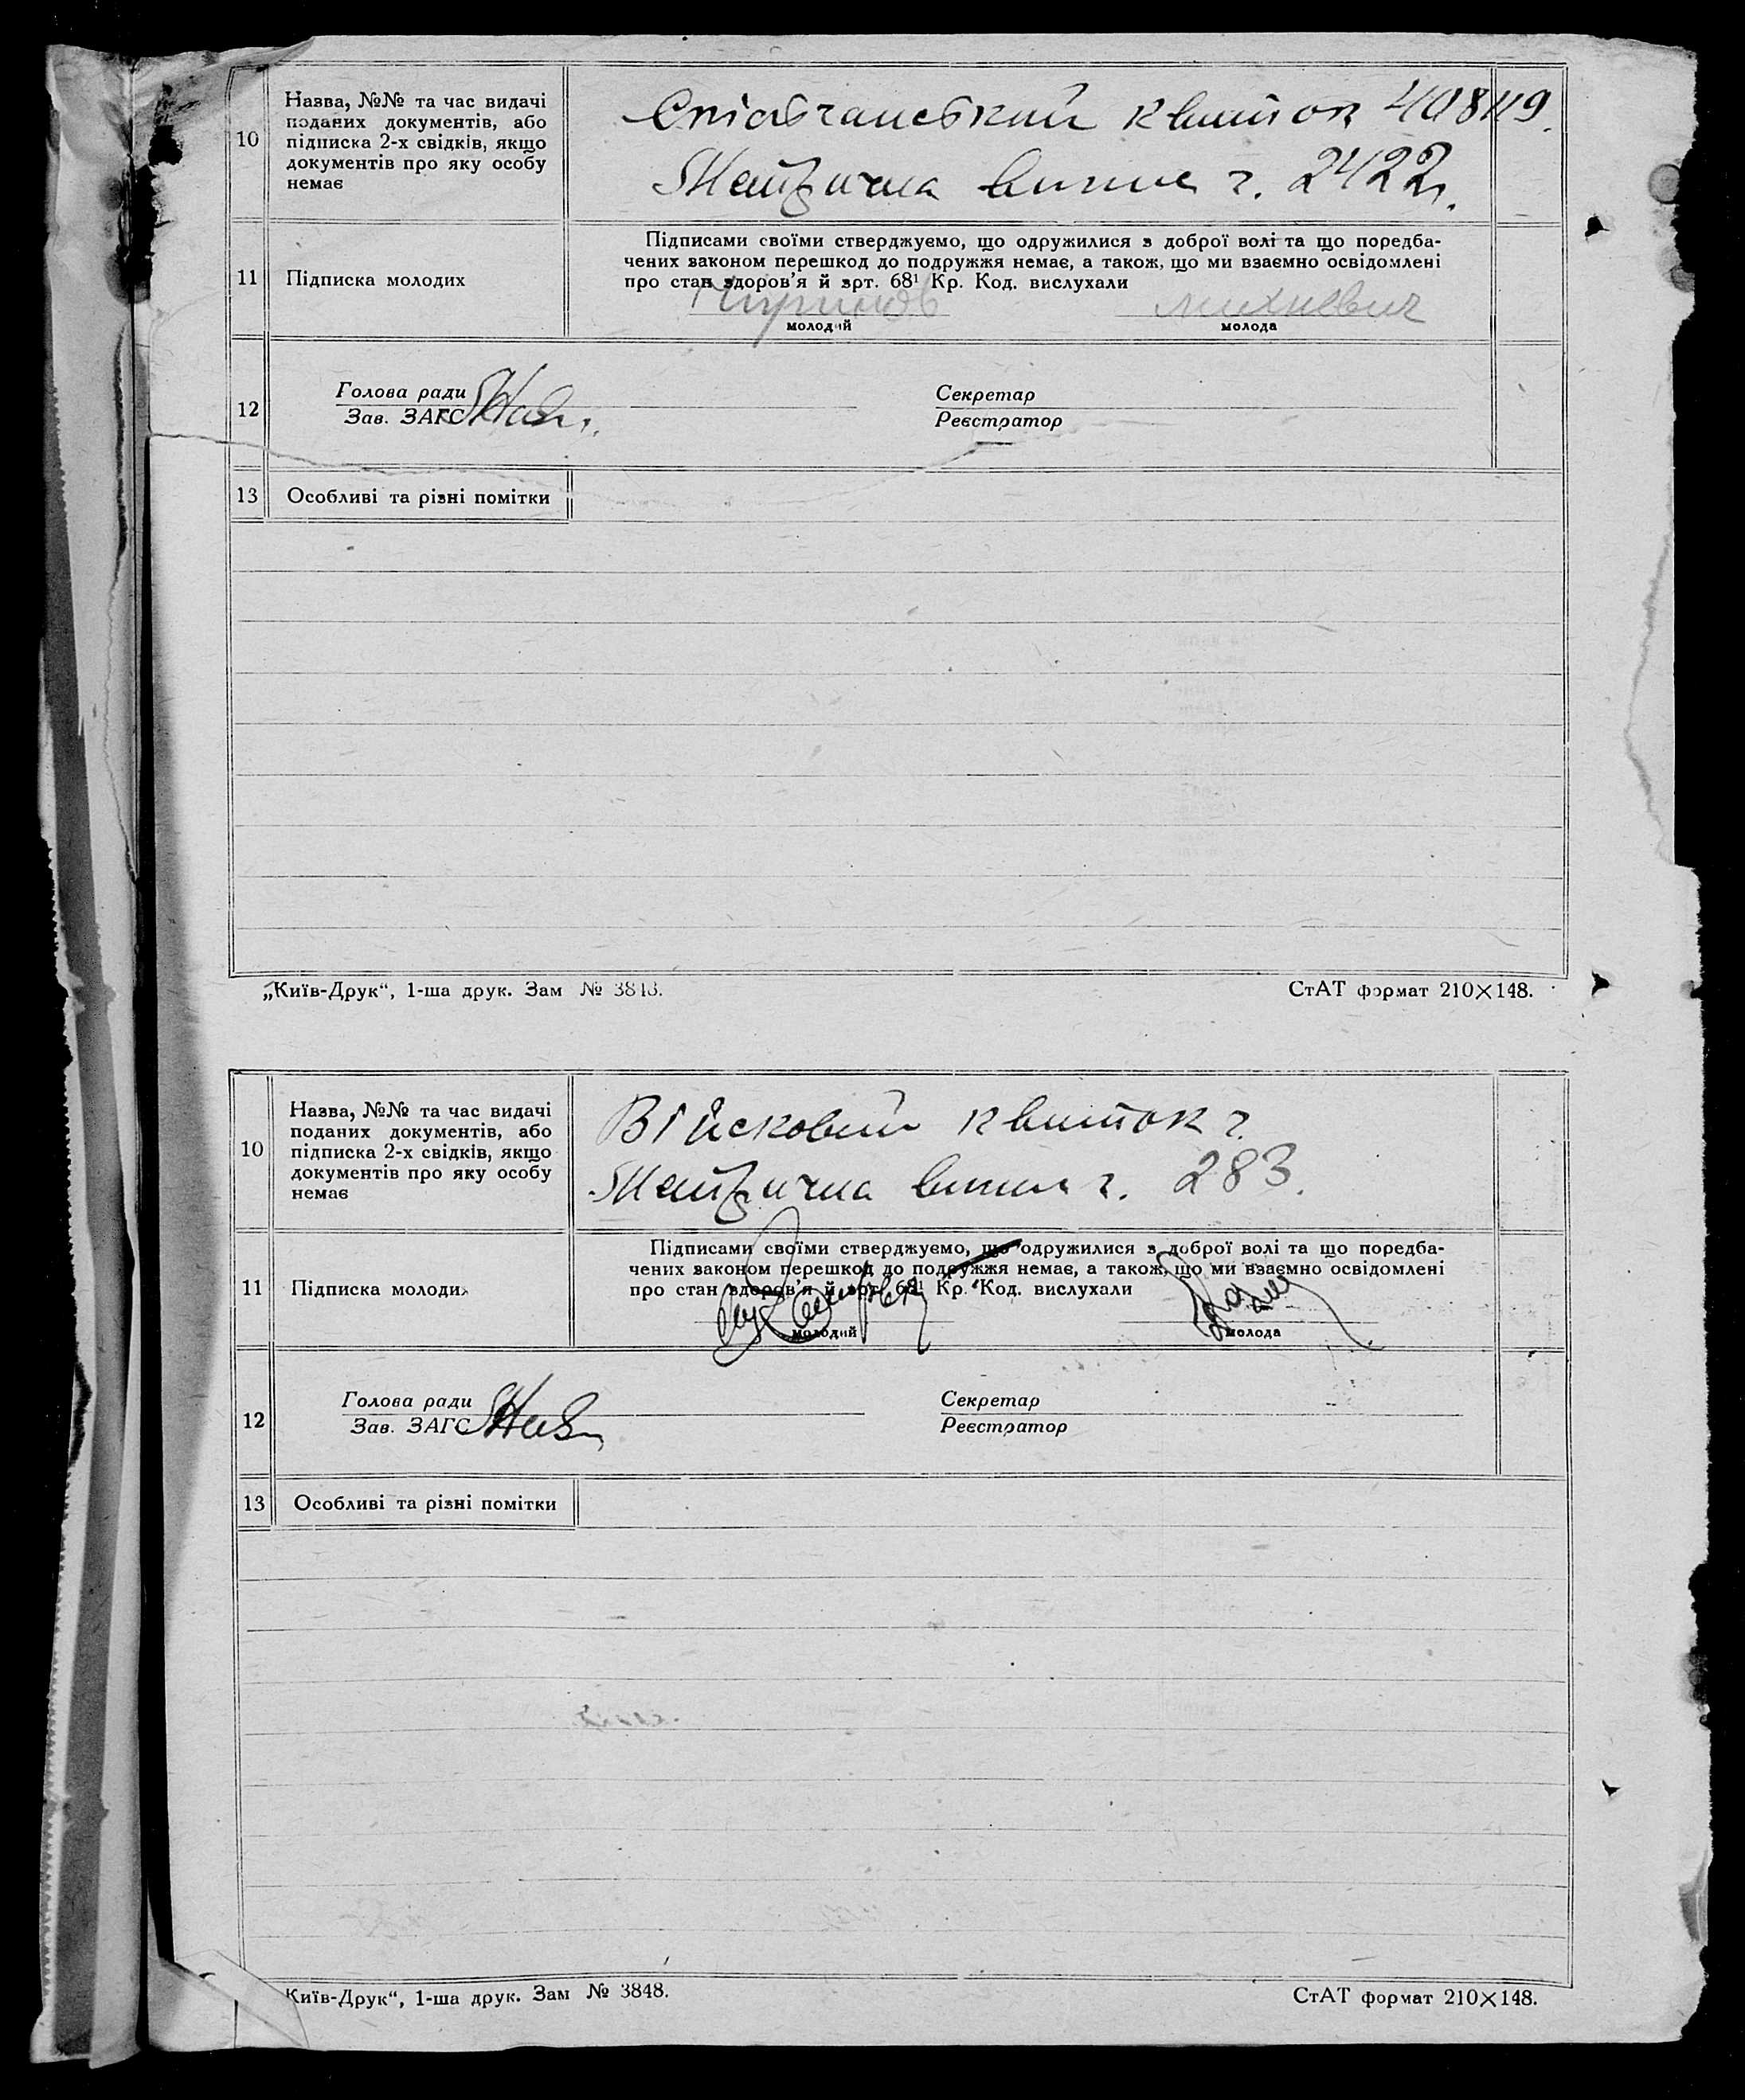 10
Назва, №№ та час видачі
поданих документів, або
підписка 2-х свідків, якщо
документів про яку особу
немає
квиток 408119.
Метрична випис ч. 2422.
11
Підписка молодих
Підписами своїми стверджуємо, що одружилися з доброї волі та що поредба-
чених законом перешкод до подружжя немає, а також, що ми взаємно освідомлені
про стан здоров'я й арт. 68¹ Кр. Код. вислухали
михневич
молодий
молода
12
Голова ради
Зав. ЗАГС
Секретар
Реєстратор
13
Особливі та різні помітки
„Київ-Друк“, 1-ша друк. Зам № 3848.
СтАТ формат 210×148.
10
Назва, №№ та час видачі
поданих документів, або
підписка 2-х свідків, якщо
документів про яку особу
немає
Військовий квиток ч.
Метрична випис ч. 283.
11
Підписка молодих
Підписами своїми стверджуємо, що одружилися з доброї волі та що поредба-
чених законом перешкод до подружжя немає, а також, що ми взаємно освідомлені
про стан здоров'я й арт. 68¹ Кр. Код. вислухали
молодий
молода
12
Голова ради
Зав. ЗАГС
Секретар
Реєстратор
13
Особливі та різні помітки
Київ-Друк“, 1-ша друк. Зам № 3848.
СтАТ формат 210×148.